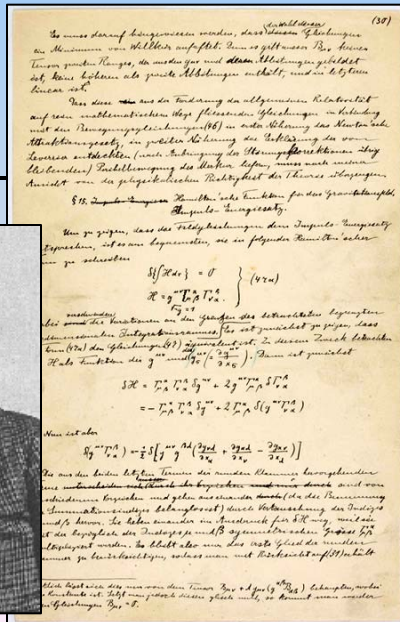 (30)
Es muss darauf hingewiesen werden, dass der Wahl dieser Gleichungen
ein Minimum von Willkür anhaftet. Denn es gibt ausser Bμν keinen
Tensor zweiten Ranges, der aus den gμν und deren Ableitungen gebildet
ist, keine höheren als zweite Ableitungen enthält, und in letzteren
linear ist.
Dass diese aus der Forderung der allgemeinen Relativität
auf rein mathematischem Wege fliessenden Gleichungen in Verbindung
mit den Bewegungsgleichungen (46) in erster Näherung das Newton'sche
Attraktionsgesetz, in zweiter Näherung die Erklärung der von
Leverrier entdeckten (nach Anbringung der Störungskorrektionen übrig
bleibenden) Perihelbewegung des Merkur liefern, muss nach meiner
Ansicht von der physikalischen Richtigkeit der Theorie überzeugen.
§ 15. Hamilton'sche Funktion für das Gravitationsfeld,
Impuls-Energiesatz.
Um zu zeigen, dass die Feldgleichungen dem Impuls-Energiesatz
entsprechen, ist es am bequemsten, sie in folgender Hamilton'scher
zu schreiben
δ{∫H dτ} = 0
(47a)
H = g^μν Γ^α_μβ Γ^β_να
√-g = 1
verschwinden
die Variationen an den Grenzen des betrachteten begrenzten
Integrationsraumes. Es ist zunächst zu zeigen, dass
(47a) den Gleichungen (47) äquivalent ist. Zu diesem Zweck betrachten
H als Funktion der g^μν und g^μν_σ (= ∂g^μν/∂x_σ). Dann ist zunächst
δH = Γ^α_μβ Γ^β_να δg^μν + 2g^μν Γ^α_μβ δΓ^β_να
= - Γ^α_μβ Γ^β_να δg^μν + 2 Γ^α_μβ δ(g^μν Γ^β_να)
Nun ist aber
δ(g^μν Γ^β_να) = -½ δ[g^μν g^βλ(∂g_νλ/∂x_α + ∂g_αλ/∂x_ν - ∂g_αν/∂x_λ)]
Die aus den beiden letzten Termen der runden Klammer hervorgehenden
sind von
Vorzeichen und gehen auseinander (da die Benennung
Summationsindizes belanglos ist) durch Vertauschung der Indizes
und β hervor. Sie heben einander im Ausdruck für δH weg, weil sie
der bezüglich der Indizes μ und β symmetrischen Grösse Γ^α_μβ
multipliziert werden. Es bleibt also nur das erste Glied der runden
Klammer zu berücksichtigen, sodass man mit Rücksicht auf (31) erhält
lässt sich dies nur von dem Tensor Bμν + λgμν (g^αβ Bαβ) behaupten, wobei
Konstante ist. Setzt man jedoch diesen gleich null, so kommt man wieder
Gleichungen Bμν = 0.